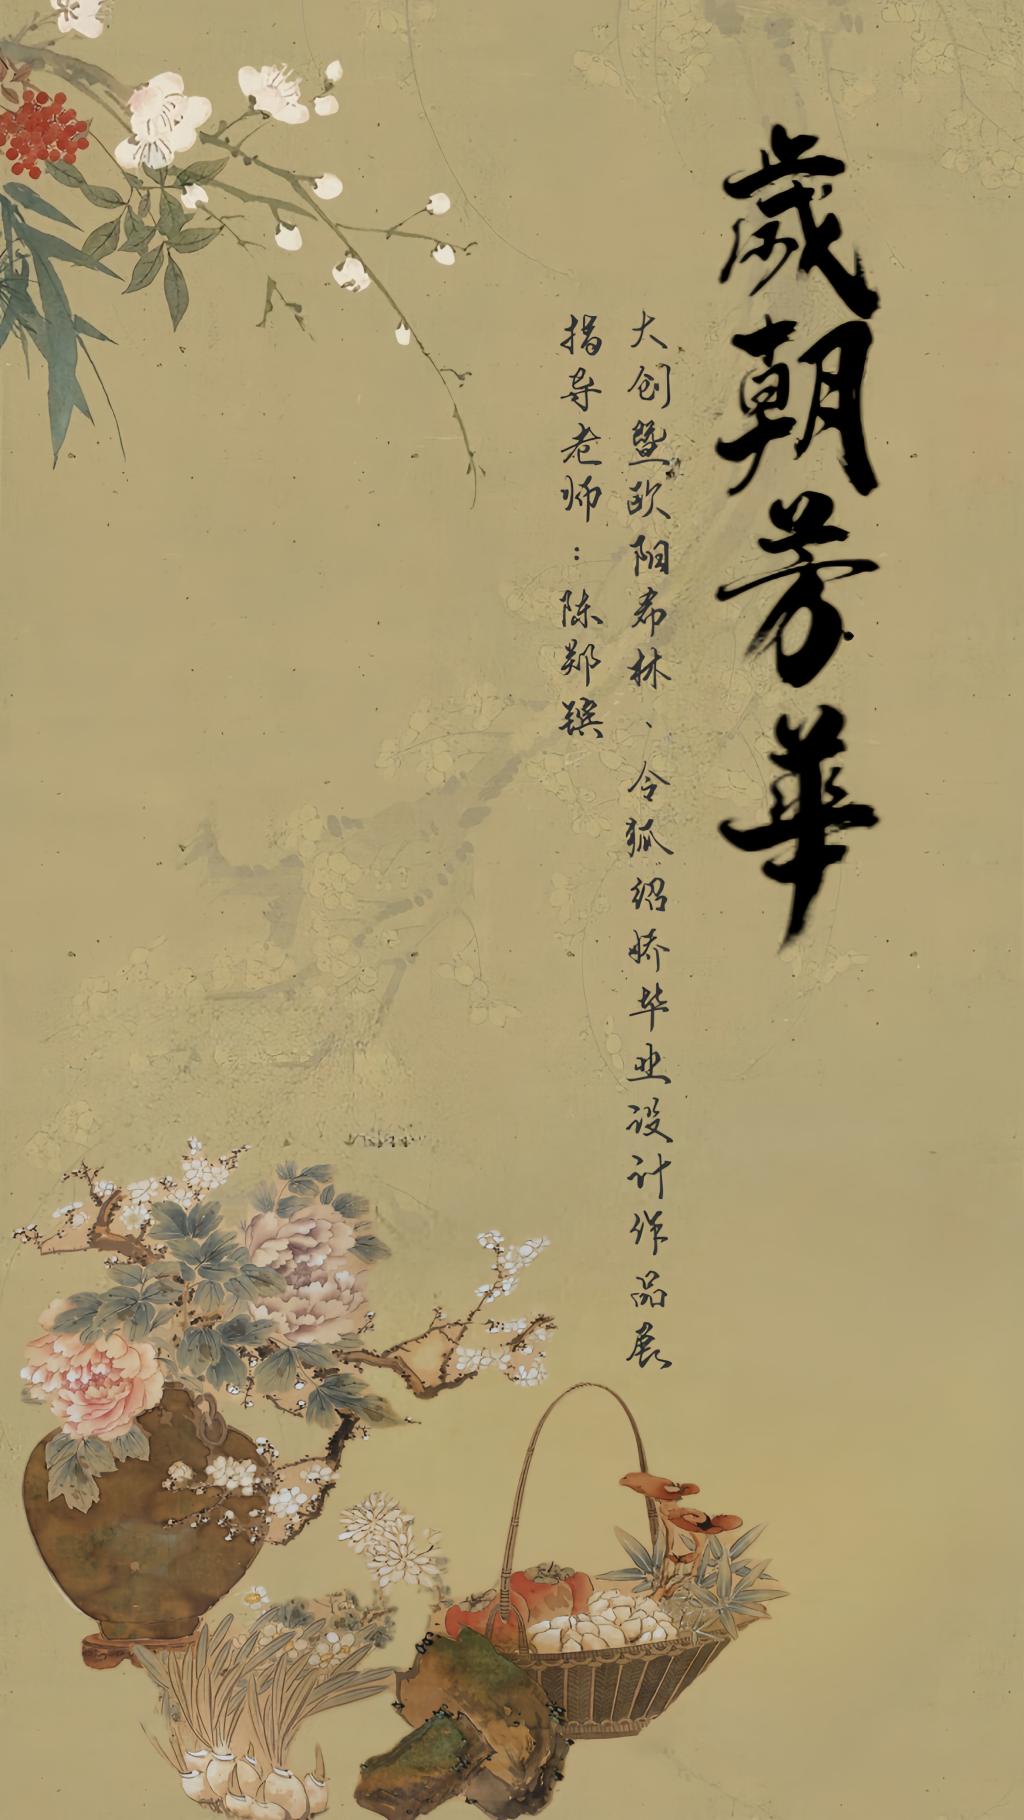 歲朝芳華
大创暨欧阳希林、令狐绍娇毕业设计作品展
指导老师：陈郑镔